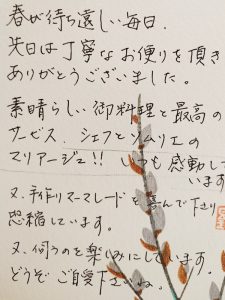 春が待ち遠しい毎日、
先日は丁寧なお便りを頂き
ありがとうございました。
素晴らしい御料理と最高の
サービス、シェフとソムリエの
マリアージュ!! いつも感動して
います
又、手作りマーマレードを喜んで下さり
恐縮しています。
又、伺うのを楽しみにしています。
どうぞご自愛下さいね。